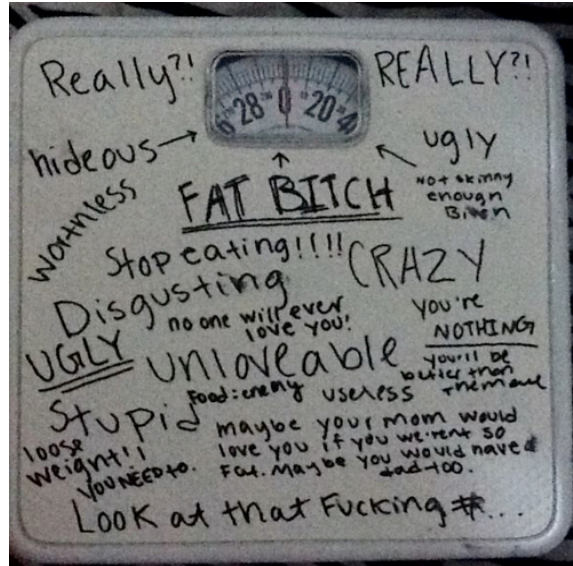 Really?! REALLY?!
28 0 20
hideous
ugly
worthless
NOT skinny
enough
Bitch
FAT BITCH
Stop eating!!!!!
CRAZY
Disgusting
no one will ever
love you!
you're
NOTHING
UGLY
unloveable
you'll be
better than
them all
Food: enemy
useless
Stupid
loose
weight!!
YOU NEED to.
maybe your mom would
love you if you weren't so
Fat. Maybe you would have a
dad too.
LOOK at that Fucking #...